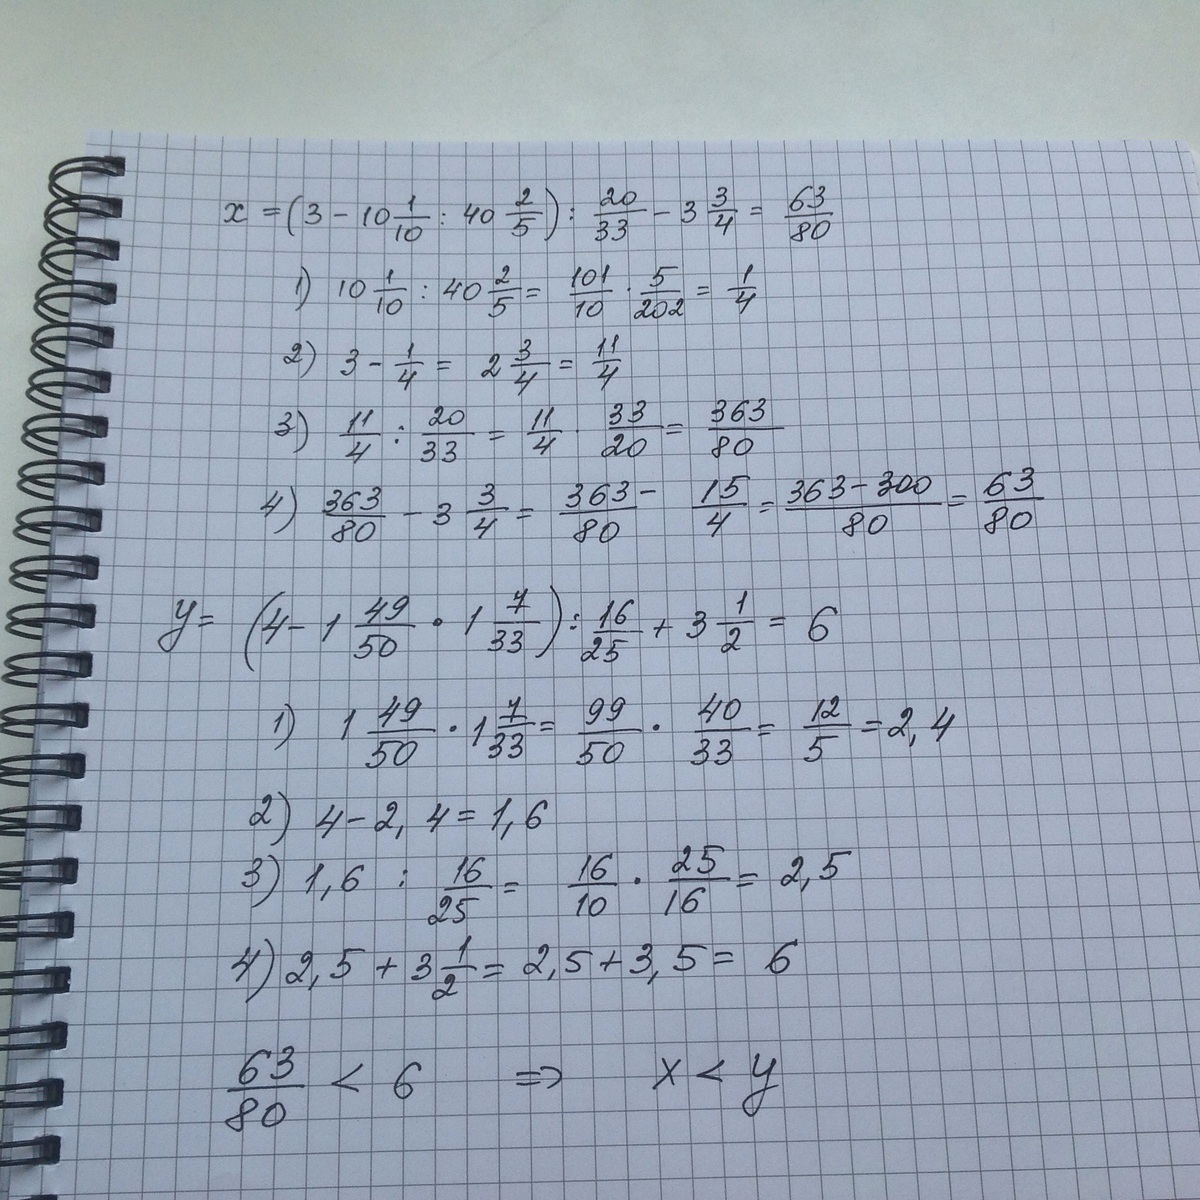 x = (3 - 10 1/10 : 40 2/5) : 20/33 - 3 3/4 = 63/80
1) 10 1/10 : 40 2/5 = 101/10 · 5/202 = 1/4
2) 3 - 1/4 = 2 3/4 = 11/4
3) 11/4 : 20/33 = 11/4 · 33/20 = 363/80
4) 363/80 - 3 3/4 = 363/80 - 15/4 = (363-300)/80 = 63/80
y = (4 - 1 49/50 · 1 7/33) : 16/25 + 3 1/2 = 6
1) 1 49/50 · 1 7/33 = 99/50 · 40/33 = 12/5 = 2,4
2) 4 - 2,4 = 1,6
3) 1,6 : 16/25 = 16/10 · 25/16 = 2,5
4) 2,5 + 3 1/2 = 2,5 + 3,5 = 6
63/80 < 6 => x < y